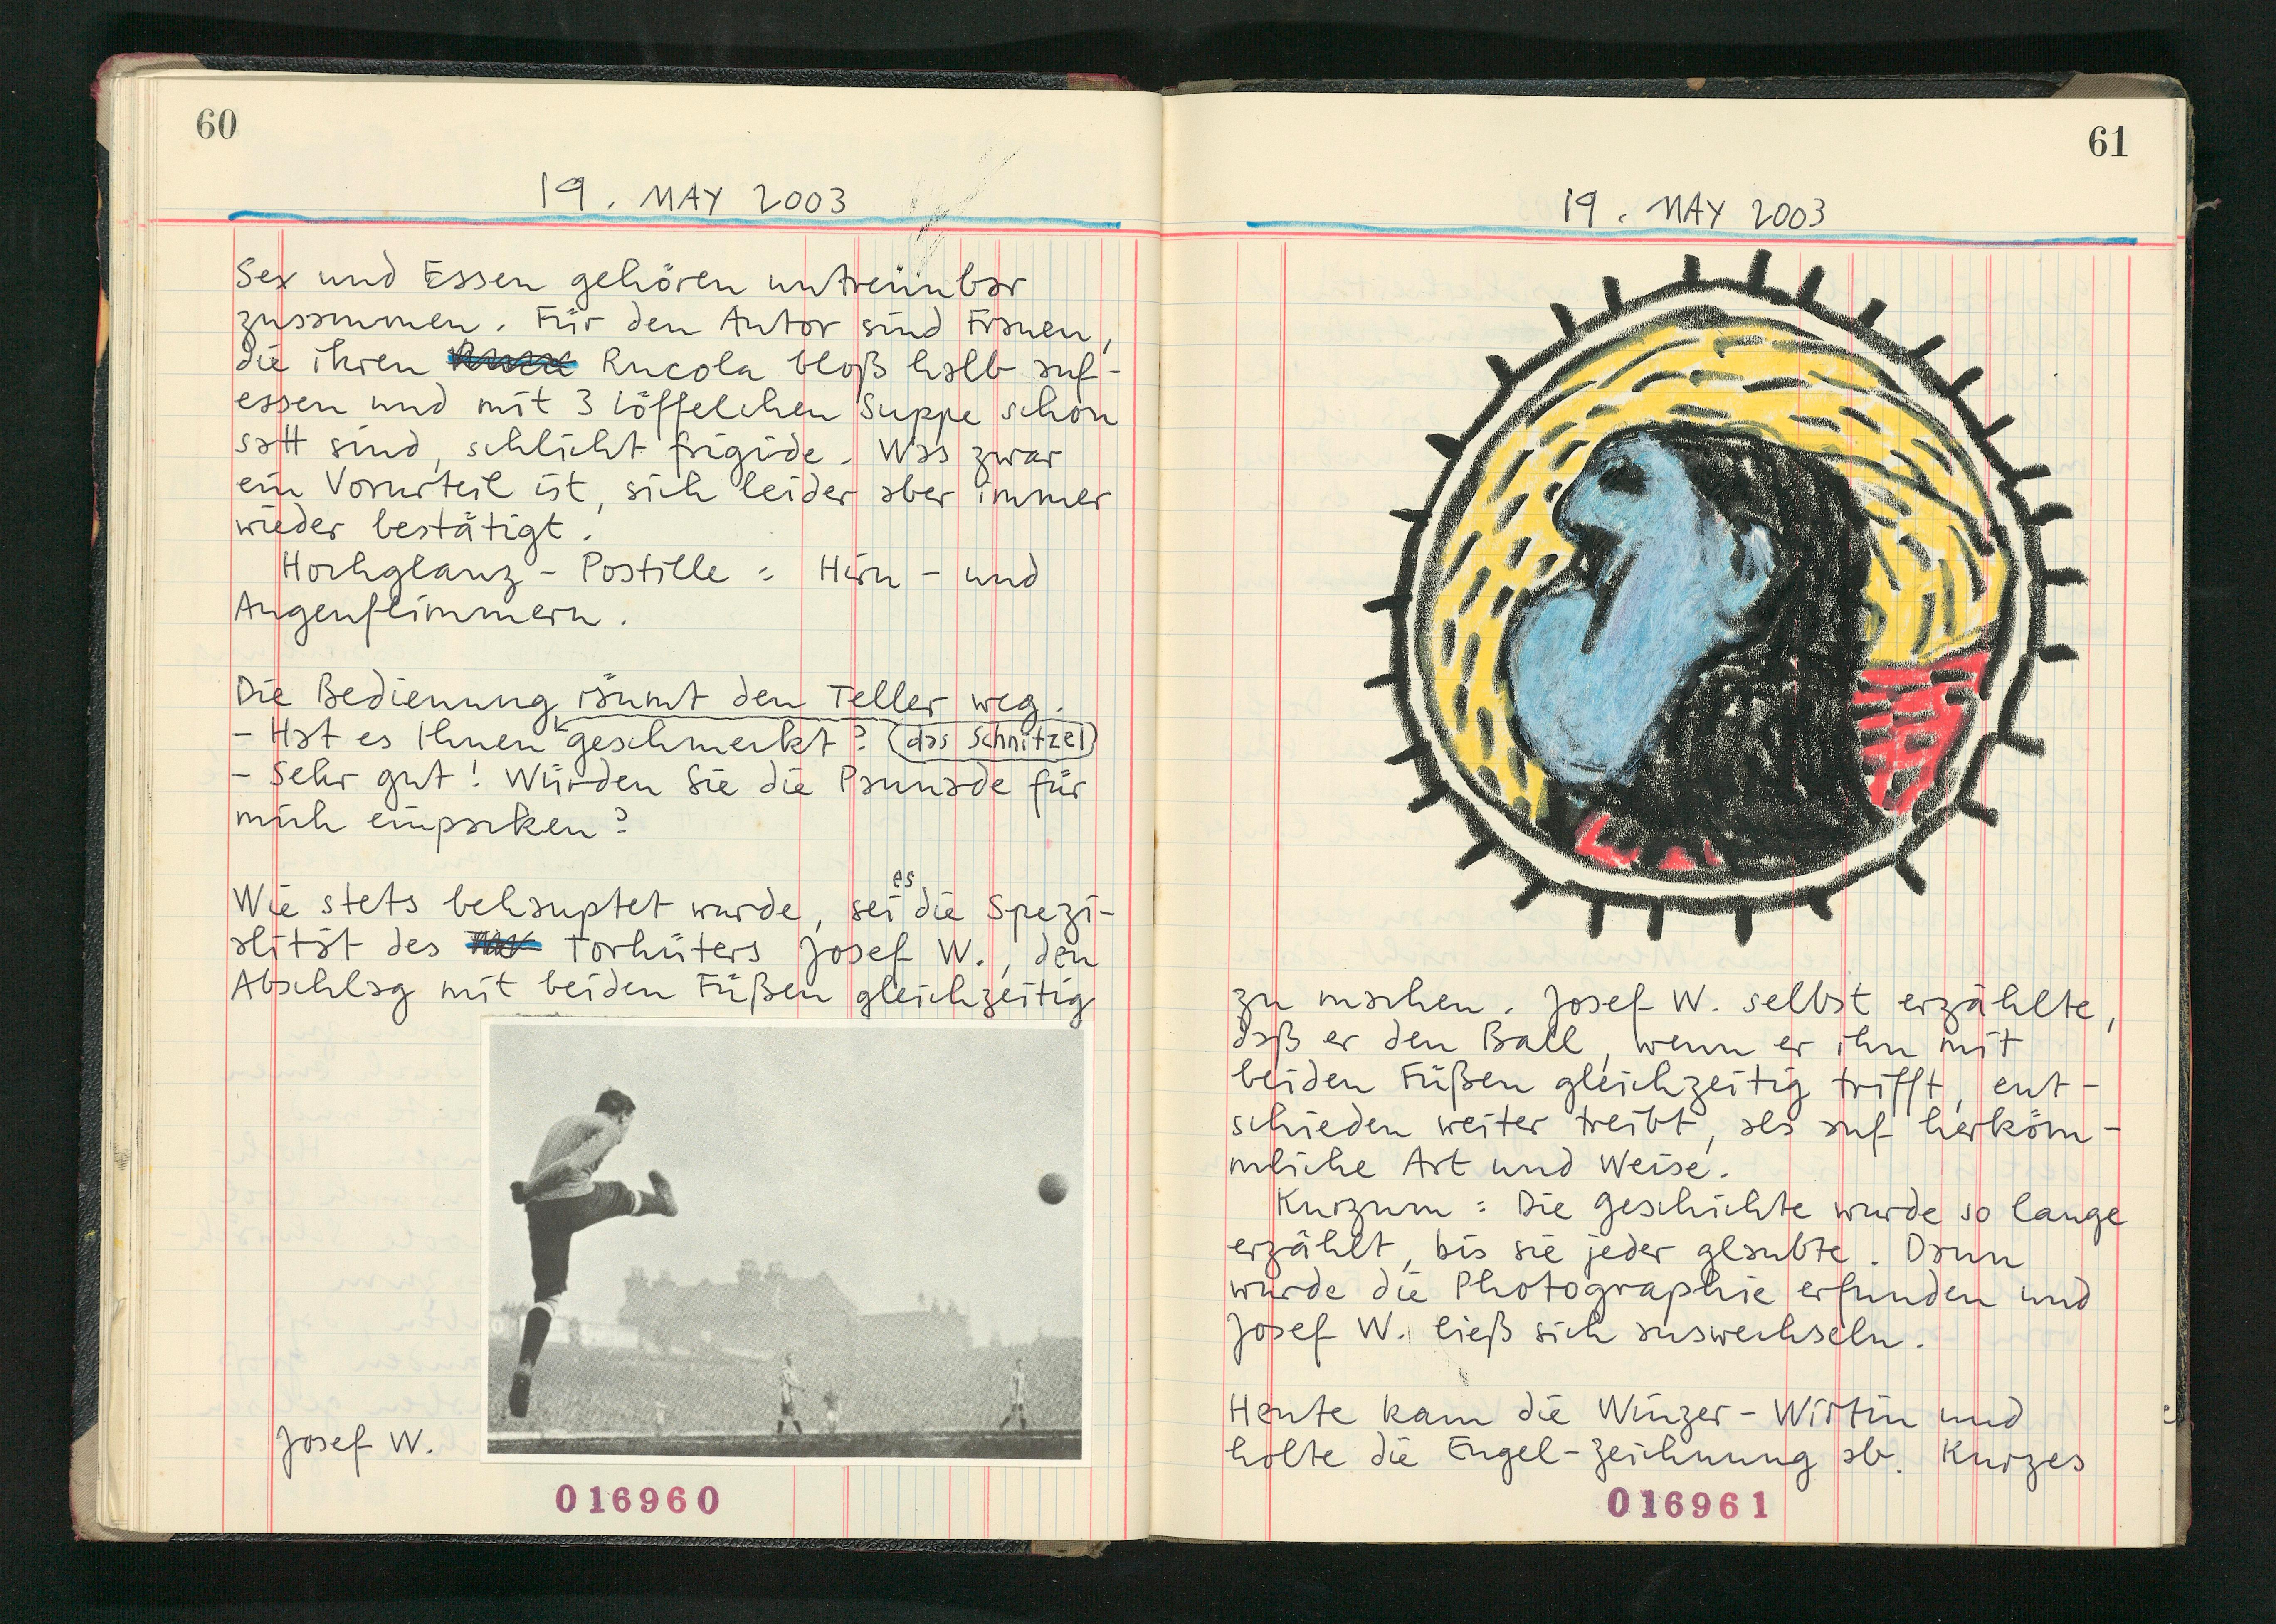 60
19. MAY 2003
Sex und Essen gehören untrennbar
zusammen. Für den Autor sind Frauen,
die ihren Rucola bloß halb auf-
essen und mit 3 Löffelchen Suppe schon
satt sind, schlicht frigide. Was zwar
ein Vorurteil ist, sich leider aber immer
wieder bestätigt.
Hochglanz-Postille = Hirn- und
Augenflimmern.
Die Bedienung räumt den Teller weg.
- Hat es Ihnen geschmeckt? (das Schnitzel)
- Sehr gut! Würden Sie die Pannade für
mich einpacken?
es
Wie stets behauptet wurde, sei die Spezi-
alität des Torhüters Josef W., den
Abschlag mit beiden Füßen gleichzeitig
Josef W.
016960
61
19. MAY 2003
zu machen. Josef W. selbst erzählte,
daß er den Ball, wenn er ihn mit
beiden Füßen gleichzeitig trifft, ent-
schieden weiter treibt, als auf herköm-
mliche Art und Weise.
Kurzum: Die Geschichte wurde so lange
erzählt, bis sie jeder glaubte. Dann
wurde die Photographie erfunden und
Josef W. ließ sich auswechseln.
Heute kam die Winzer-Wirtin und
holte die Engel-Zeichnung ab. Kurzes
016961